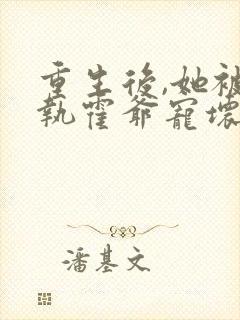 重生後,她被
執霍爺寵壞
潘基文